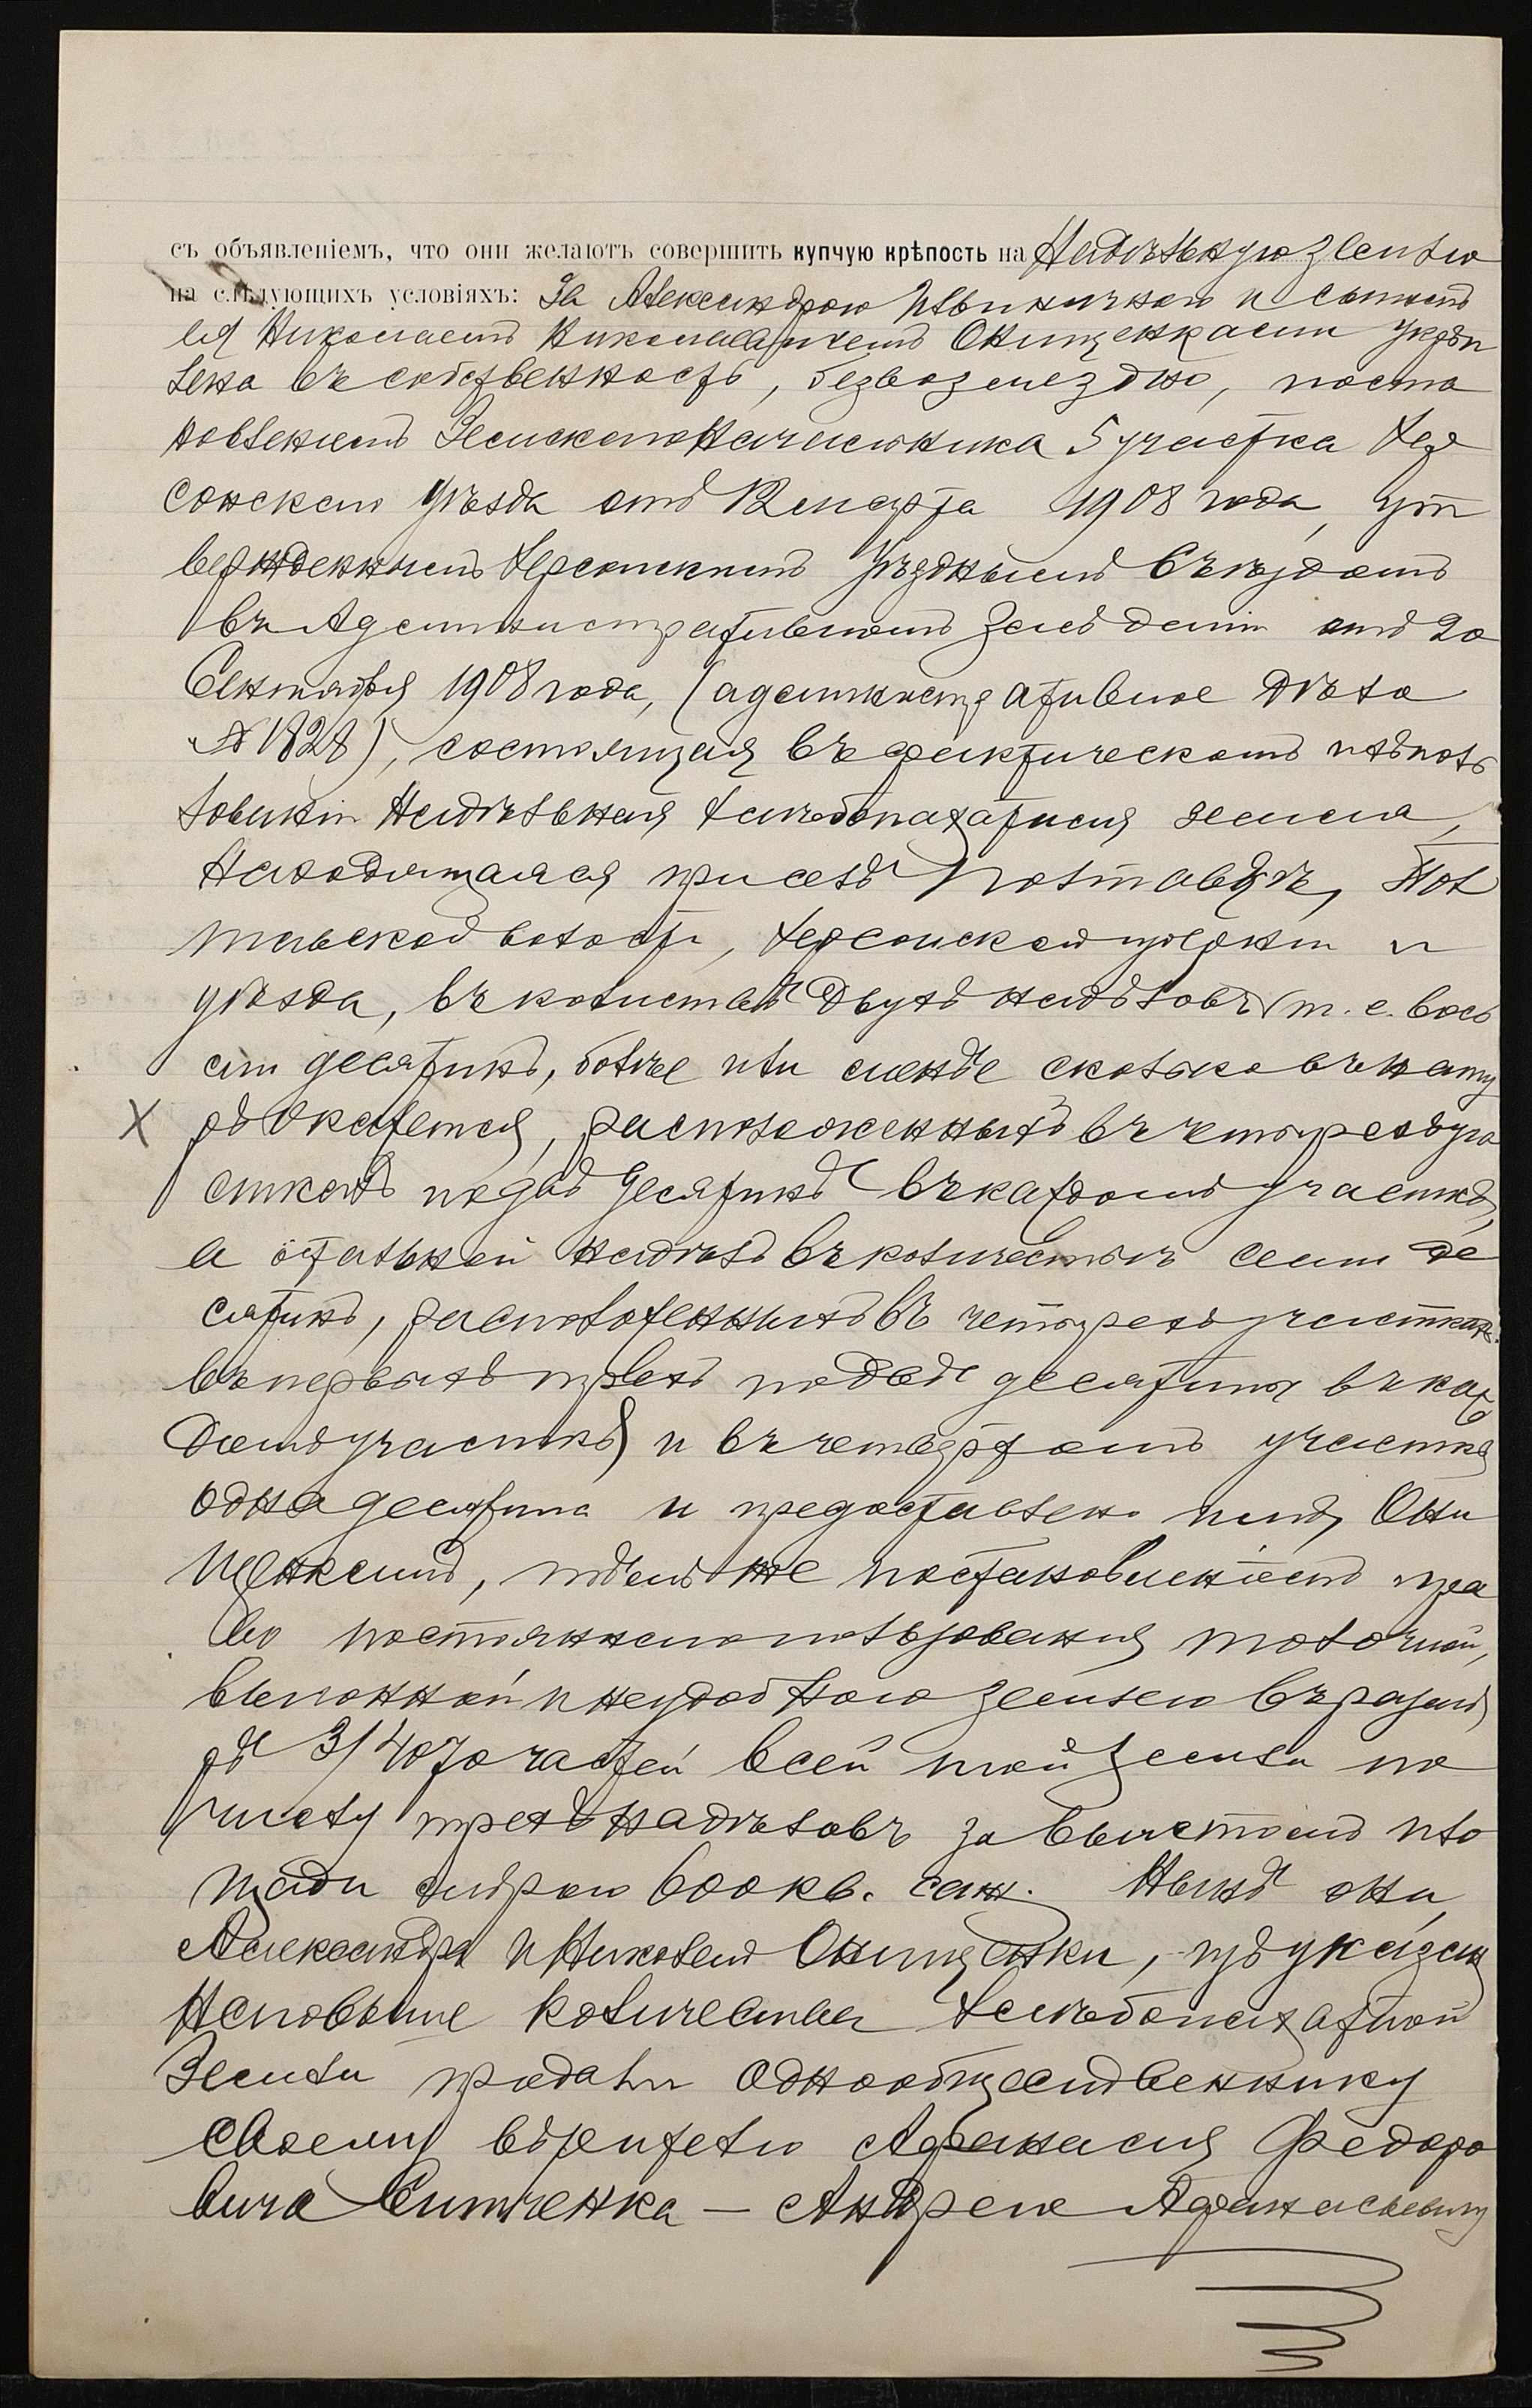 съ объявленіемъ, что они желаютъ совершить купчую крѣпость на Надѣльную землю
на слѣдующихъ условіяхъ: За Александрою Ильиничною и сыномъ
ея Николаемъ Николаевичемъ Онищенками укрѣп
лена въ собственность, безвозмездно, поста
новленіемъ Земскаго Начальника 5 участка Хер
сонскаго уѣзда отъ 12 Марта 1908 года, ут
вержденнымъ Херсонскимъ Уѣзднымъ Съѣздомъ
въ Административномъ Засѣданіи отъ 20
Сентября 1908 года, (административное дѣло
№ 1828), состоящая въ фактическомъ ихъ поль
зованіи Надѣльная хлѣбопахатная земля,
находящаяся при селѣ Полтавкѣ, Пол
тавской волости, Херсонской губерніи и
уѣзда, въ количествѣ Двухъ надѣловъ т. е. вось
ми десятинъ, болѣе или менѣе сколько въ нату
рѣ окажется, расположенныхъ въ четырехъ уча
сткахъ по двѣ десятинѣ въ каждомъ участкѣ,
а остальной надѣлъ въ количествѣ семи де
сятинъ, расположенныхъ въ четырехъ участкахъ:
въ первыхъ трехъ по двѣ десятины въ каж
домъ участкѣ и въ четвертомъ участкѣ
одна десятина и предоставлено имъ, Они
щенкамъ, тѣмъ же постановленіемъ пра
во постояннаго пользованія толочной,
выгонной и неудобною землею въ размѣ
рѣ 3/4070 частей всей той земли по
числу трехъ надѣловъ за вычетомъ пло
щади мѣрою 600 кв. саж. Нынѣ они,
Александра и Николай Онищенки, изъ указан
наго выше количества хлѣбопахатной
Земли продали однообщественнику
своему Афанасія Федоро
вича Ситченка — Андрею Афанасьевичу